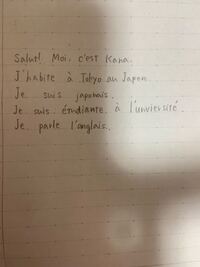 Salut! Moi, c'est Kana.
J'habite à Tokyo au Japon.
Je suis japonais.
Je suis étudiante à l'unviersité.
Je parle l'anglais.